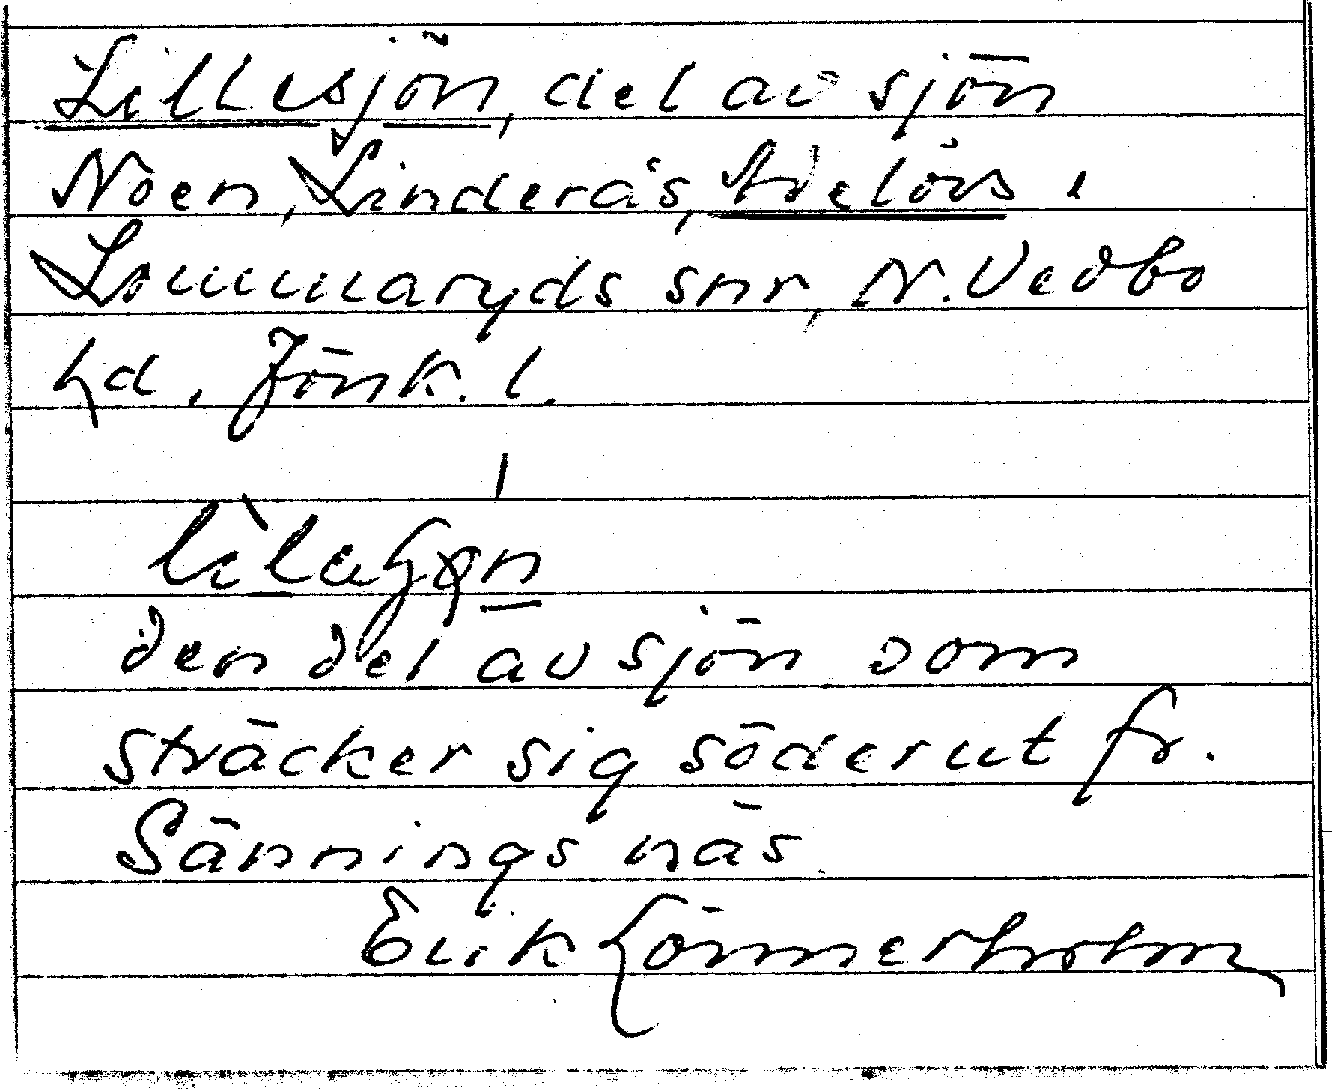 Lillesjön, del av sjön
Noen, Linderås, Adelövs i
Lommaryds snr, N. Vedbo
hd. Jönk. l.
den del av sjön som
sträcker sig söderut fr.
Sännings näs
Erik Lönnerholm